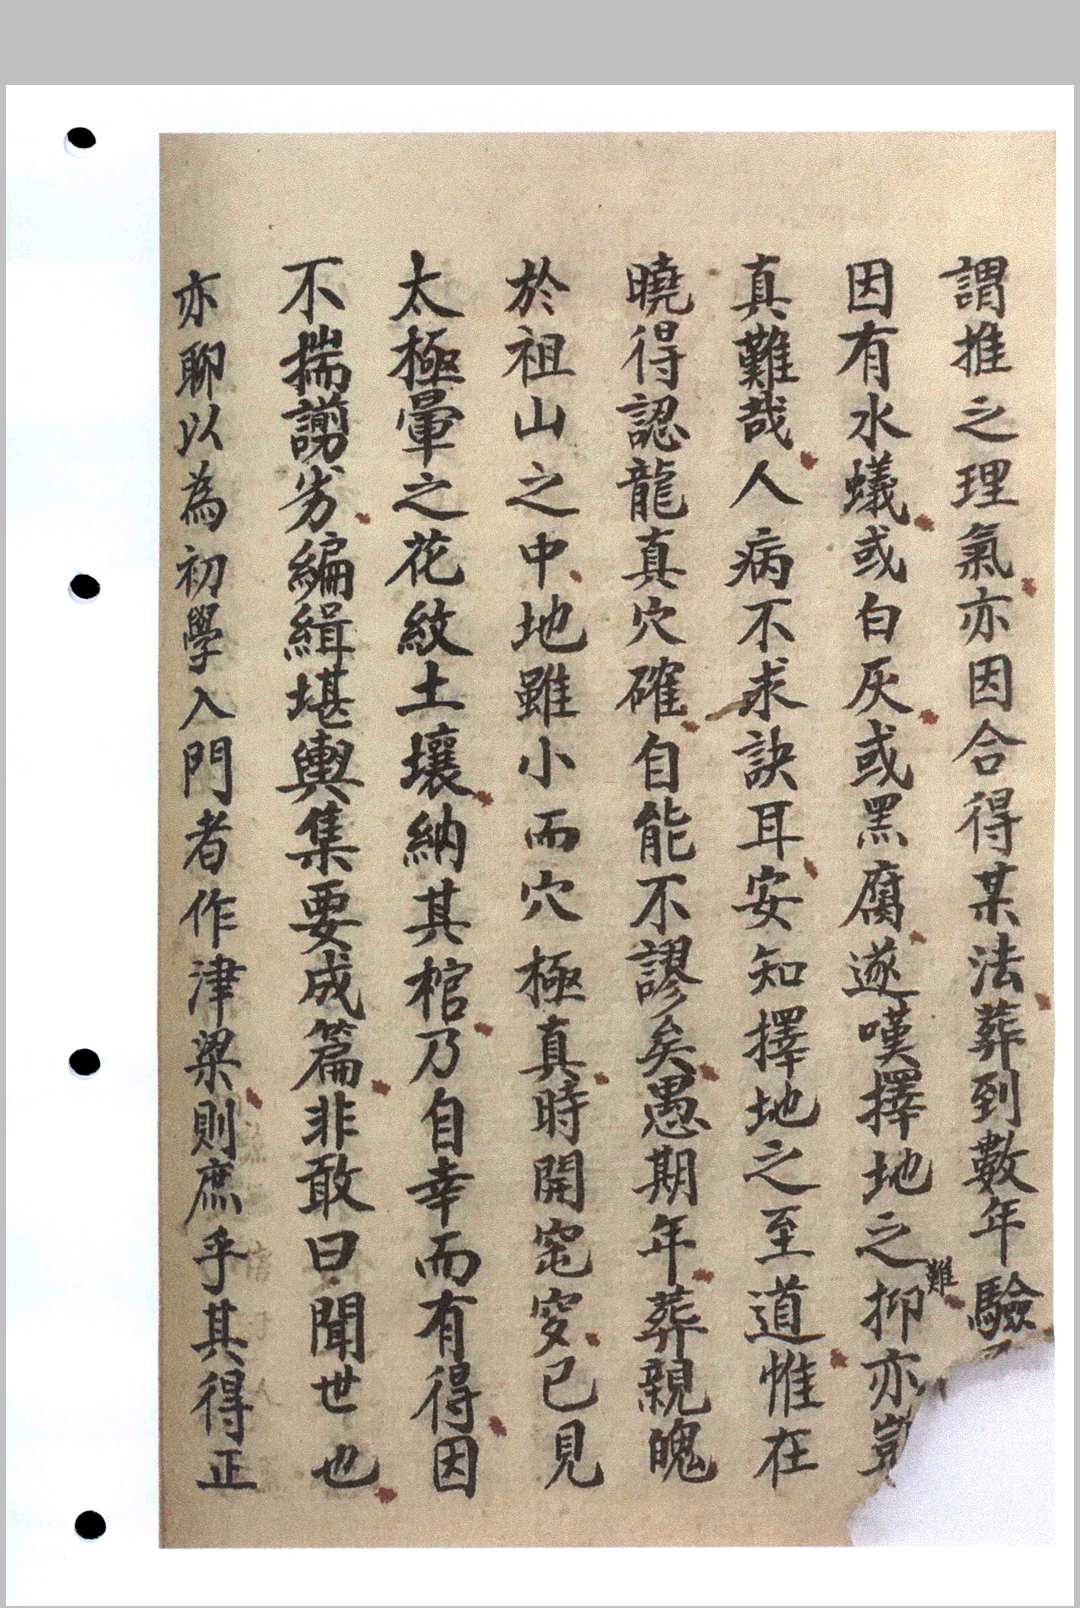 謂推之理氣亦因合得某法葬到數年驗
因有水蟻或白灰或黑腐遂嘆擇地之難抑亦豈
真難哉人病不求訣耳安知擇地之至道惟在
曉得認龍真穴確自能不謬矣愚期年葬親魄
於祖山之中地雖小而穴極真時開窀穸已見
太極暈之花紋土壤納其棺乃自幸而有得因
不揣謭劣編緝堪輿集要成篇非敢曰聞世也
亦聊以為初學入門者作津梁則庶乎其得正